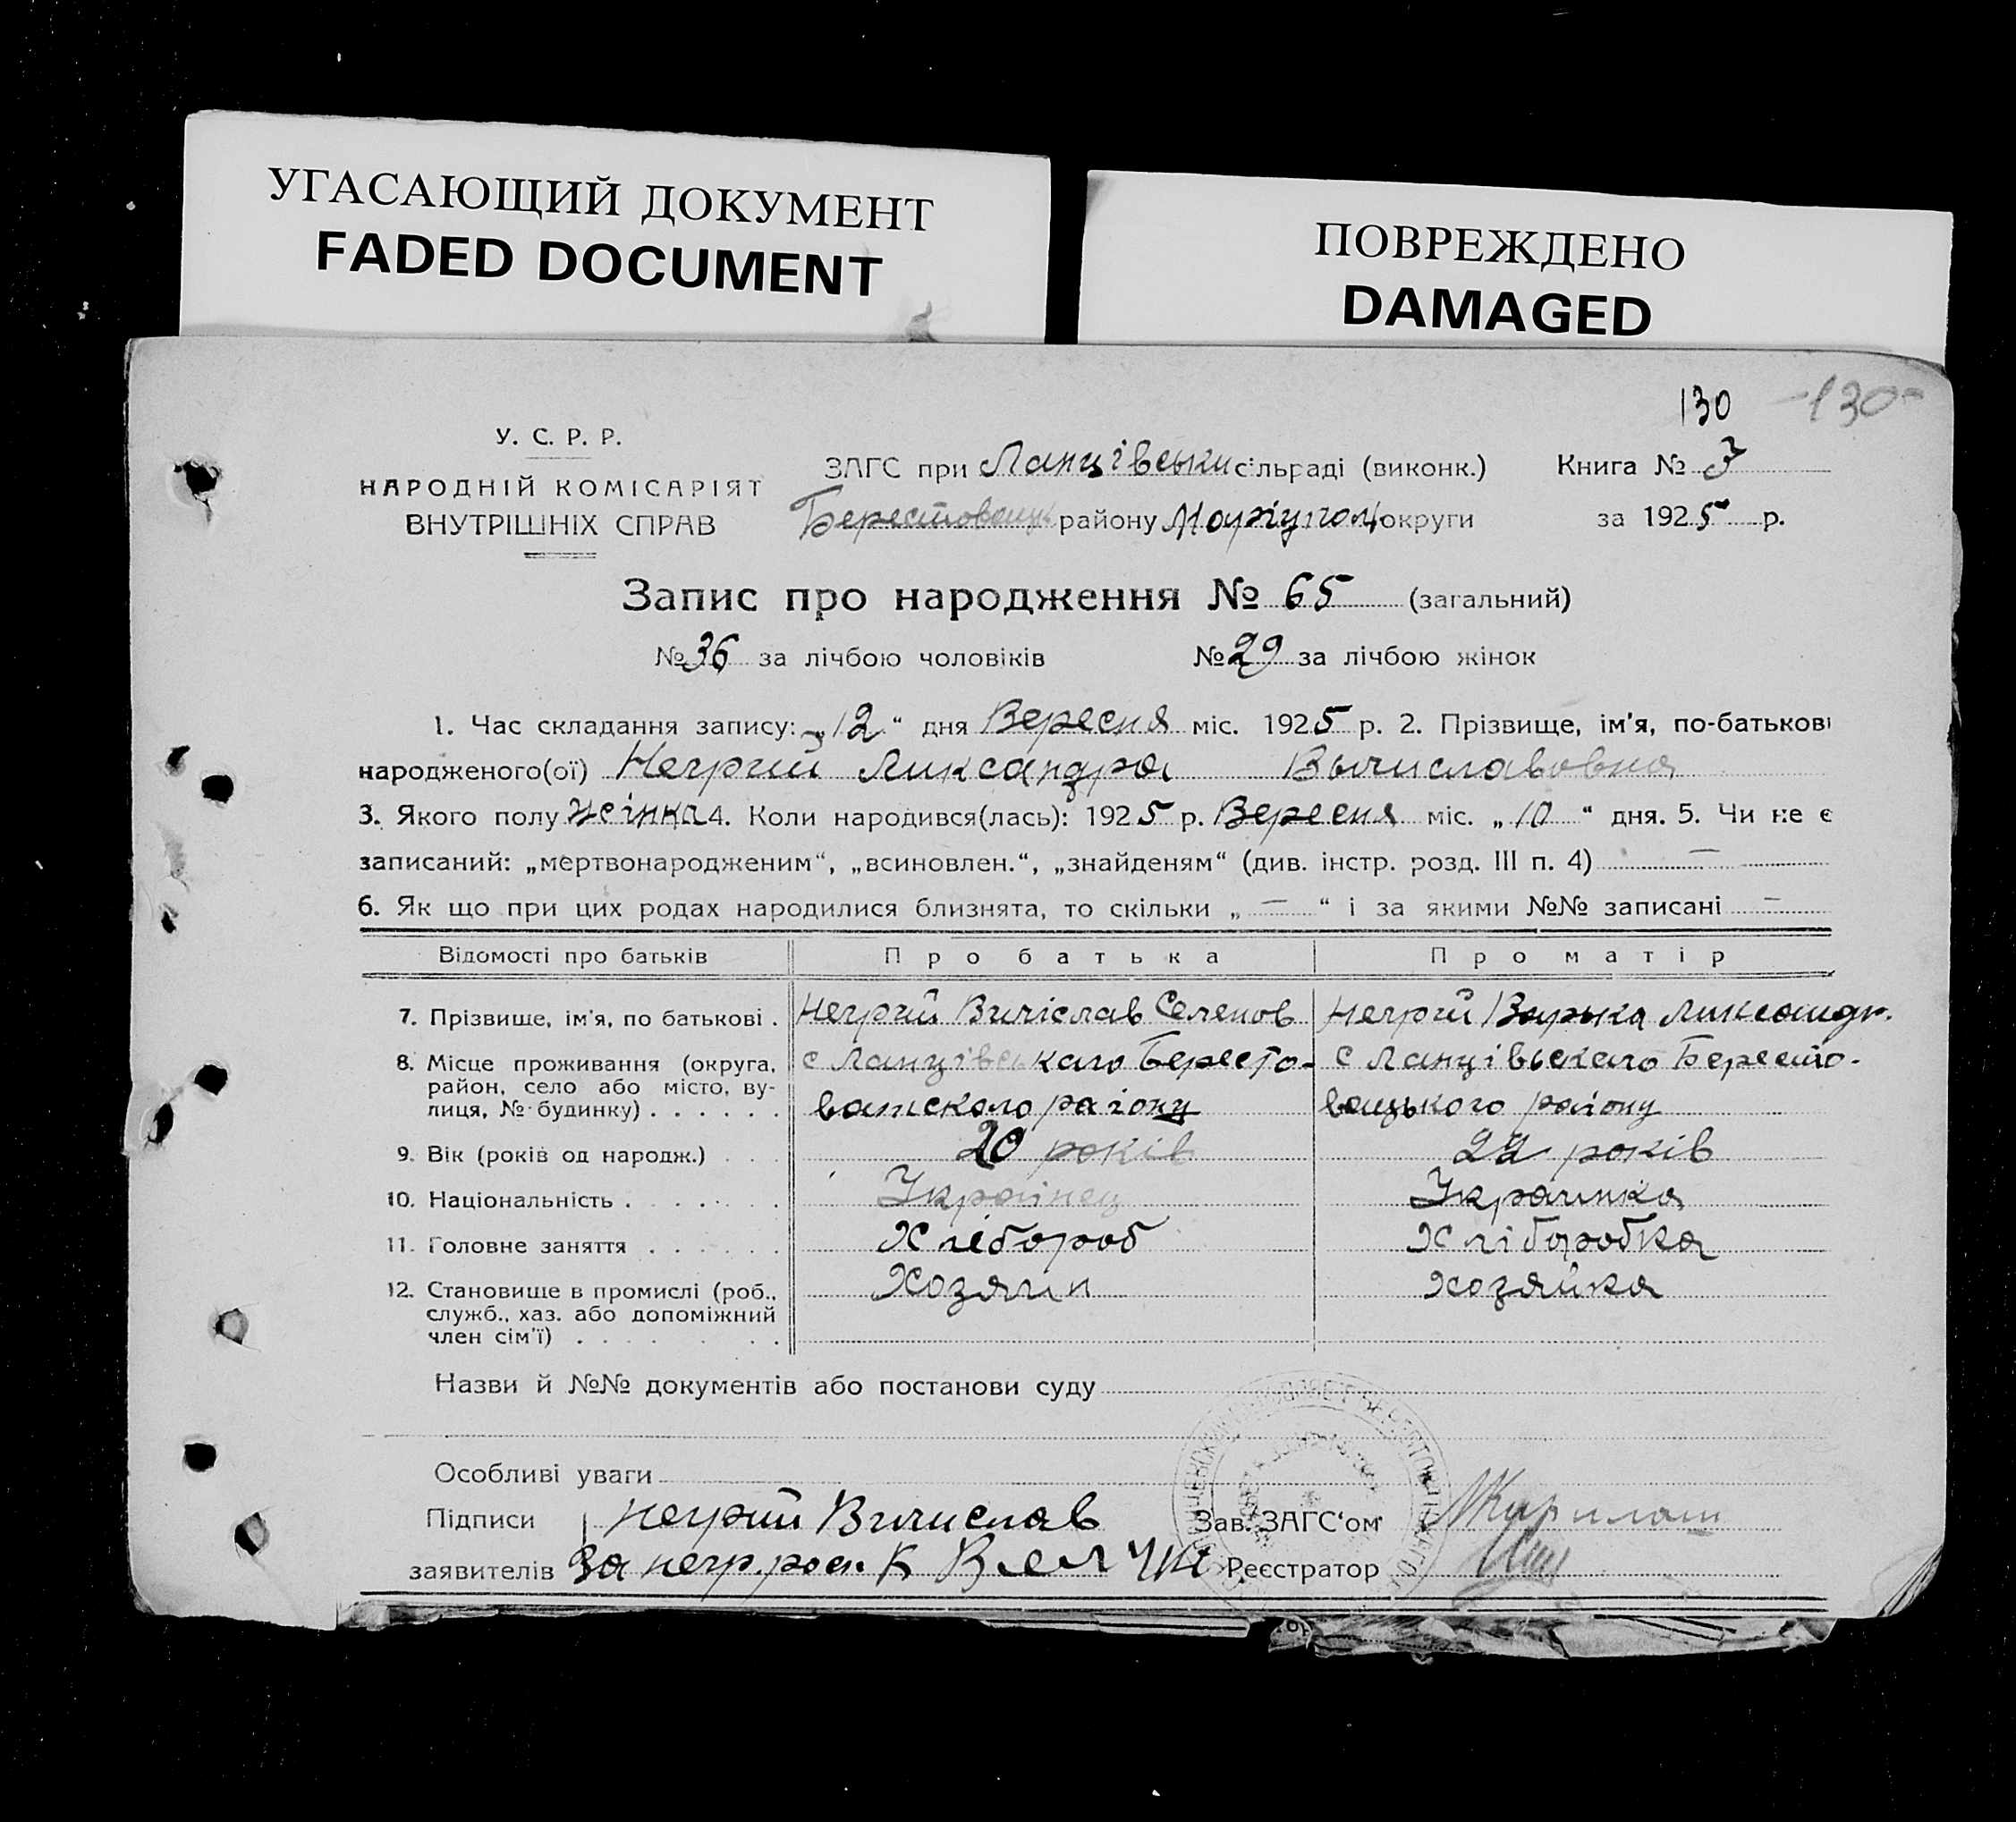 УГАСАЮЩИЙ ДОКУМЕНТ
FADED DOCUMENT
ПОВРЕЖДЕНО
DAMAGED
130 -130-
У. С. Р. Р.
НАРОДНІЙ КОМІСАРІЯТ
ВНУТРІШНІХ СПРАВ
ЗАГС при Ланцівськи сільраді (виконк.) Книга № 3
Берестовецьк району Маріупол округи за 1925 р.
Запис про народження № 65 (загальний)
№ 36 за лічбою чоловіків № 29 за лічбою жінок
1. Час складання запису: „12“ дня Вересня міс. 1925 р. 2. Прізвище, ім'я, по-батькові
народженого(ої) Негрий Ликсандра Вичиславовна
3. Якого полу жінка 4. Коли народився(лась): 1925 р. Вересня міс. „10“ дня. 5. Чи не є
записаний: „мертвонародженим“, „всиновлен.“, „знайденям“ (див. інстр. розд. III п. 4) —
6. Як що при цих родах народилися близнята, то скільки „ — “ і за якими №№ записані —
Відомості про батьків Про батька Про матір
7. Прізвище, ім'я, по батькові . Негрий Вичіслав Семенов Негрий Варька Ликсандр.
8. Місце проживання (округа, район, село або місто, вулиця, № будинку) . . . . . . с Ланцівськаго Бересто- с Ланцівьскаго Бересто-
ватского району вацького району
9. Вік (років од народж.) . . . 20 років 22 років
10. Національність . . . . . . Українец Украинка
11. Головне заняття . . . . . . Хлібороб Хліборобка
12. Становище в промислі (роб., служб., хаз. або допоміжний член сім'ї) . . . . . . Хозяин хозяйка
Назви й №№ документів або постанови суду
Особливі уваги
Підписи Негрий Вичислав Зав. ЗАГС'ом
заявителів За негр. рос. К Реєстратор